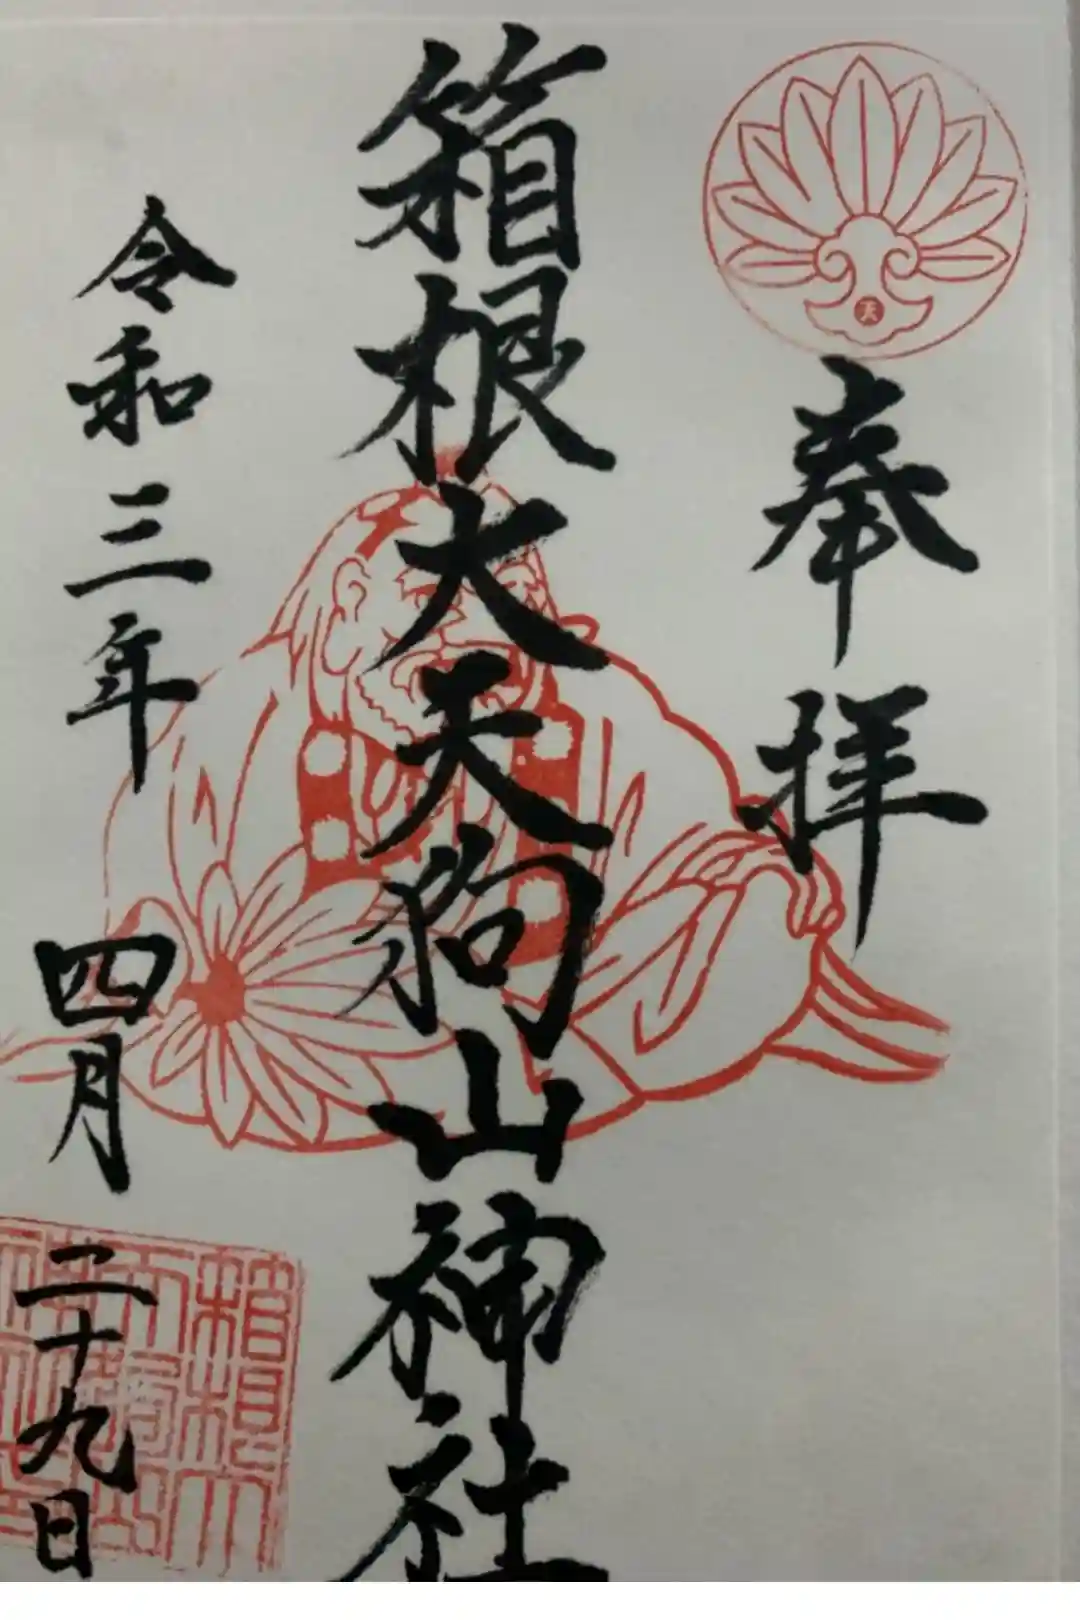 天
奉拝
箱根大天狗山神社
令和三年
四月
二十九日